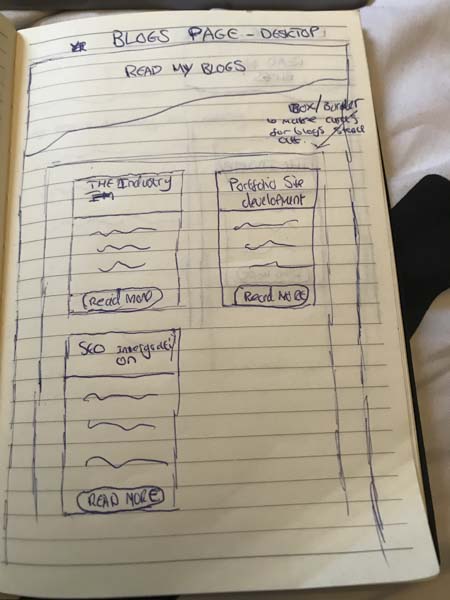 BLOGS PAGE - DESKTOP
READ MY BLOGS
BOX/Border
to make cards
for blogs stand
out.
THE Industry
Portfolio Site
development
Read MORE
Read MORE
SEO
on
READ MORE